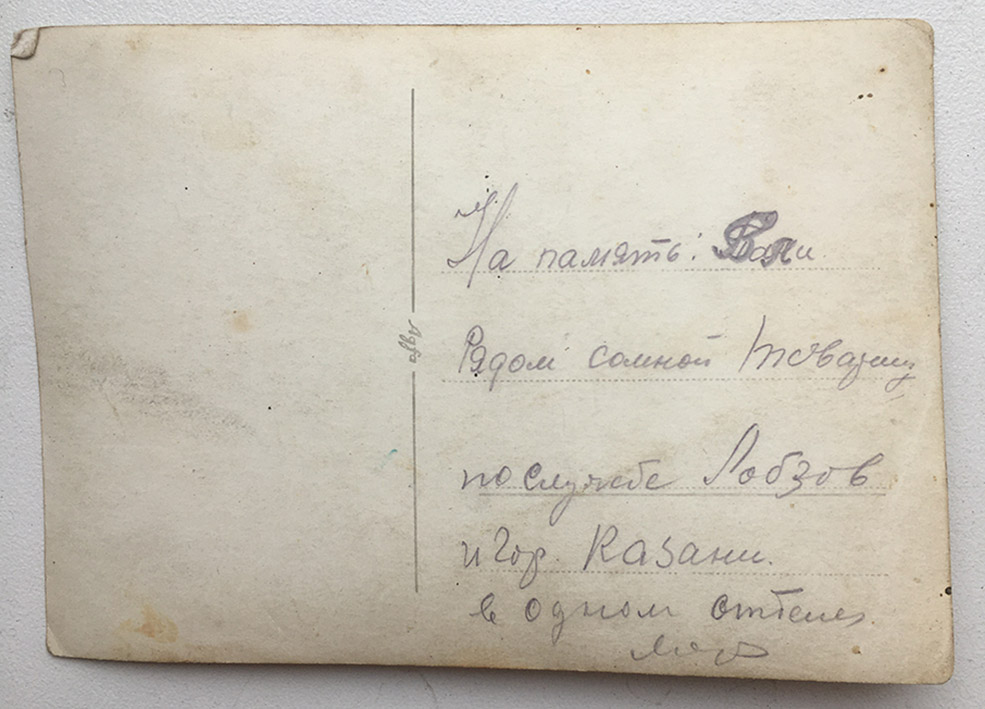 На память: Вали
Рядом сомной товарищ
по службе Лобзов
и гор. Казани.
в одном
Agfa